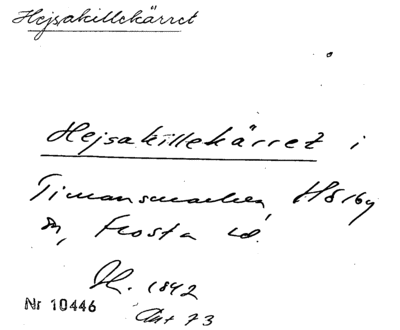 Hejsakillekärret
Hejsakillekärret i
Timansmarken, Hörby
sn, Frosta hd.
1842
Nr 10446
Akt 73